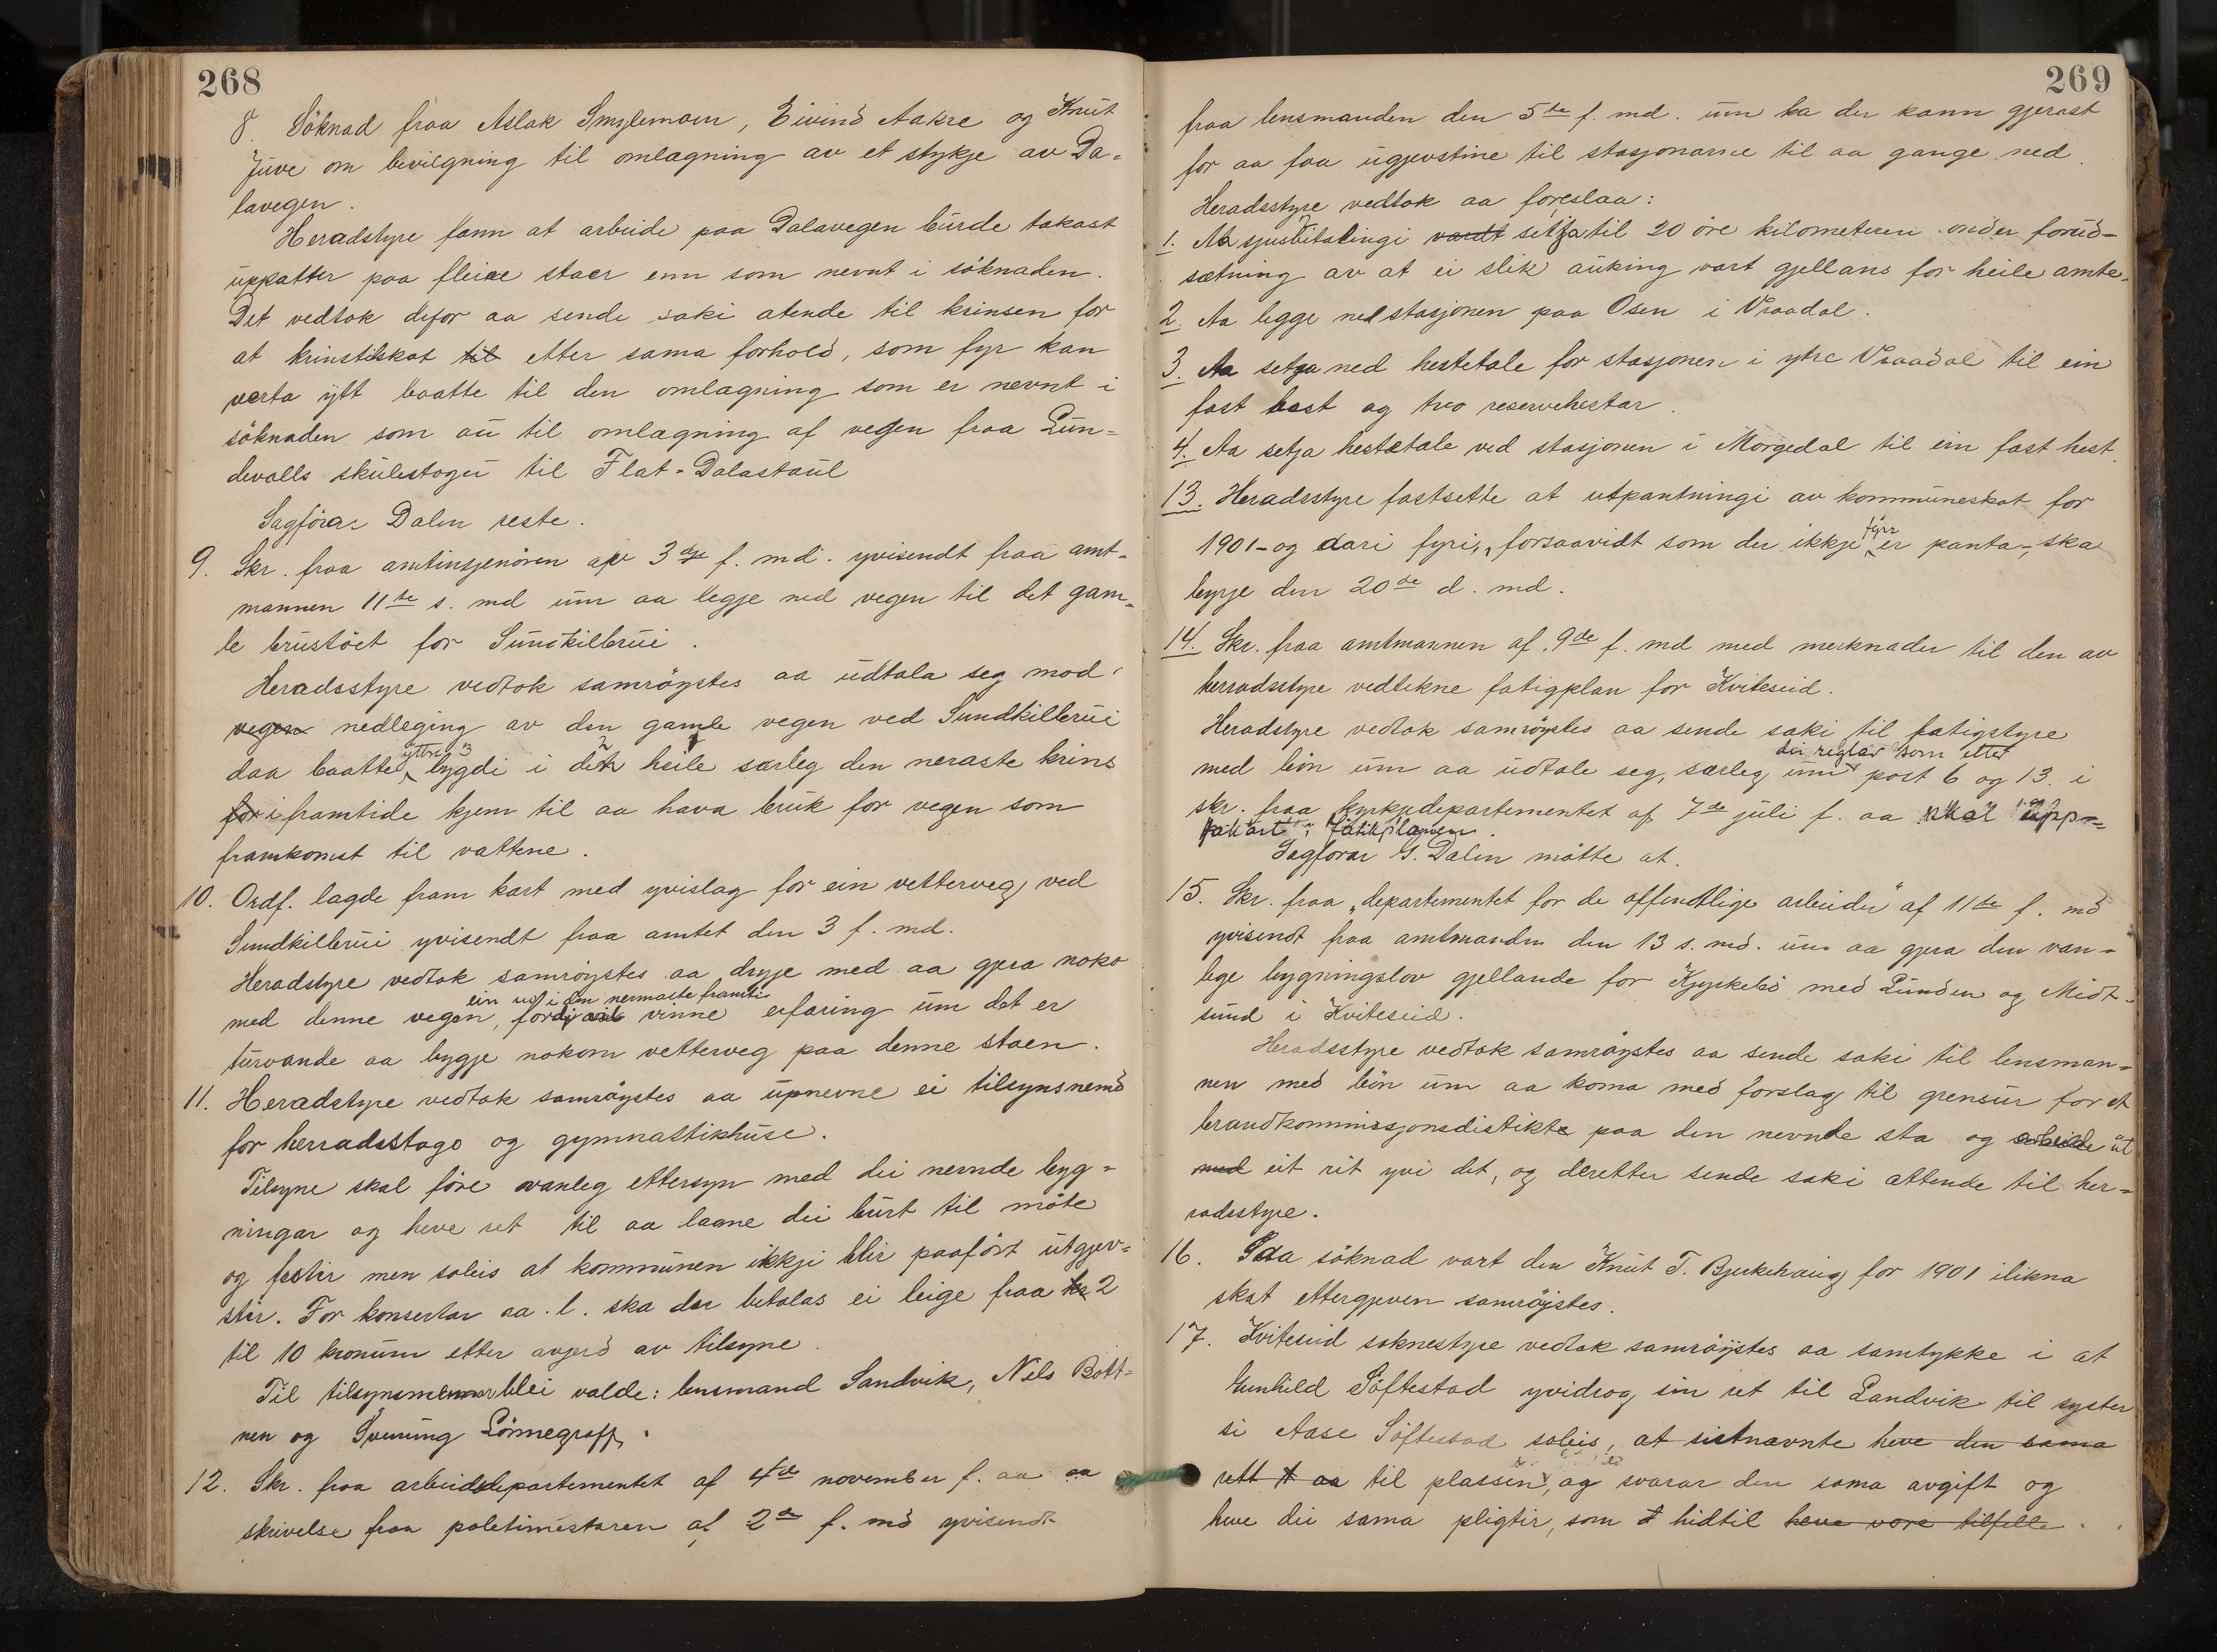 268
8. Söknad fraa Aslak Smylemoen, Eivind Aakre og Knut
Juve om bevilgning til omlægning av et stykje av Da-
lavegen.
Heradstyre fann at arbeide paa Dalavegen burde takast
uppatter paa fleire staer enn som nevnt i söknaden.
Det vedtok defor aa sende saki atende til krinsen for
at krinstilskot til etter sama forhold, som fyr kan
verta ytt baatte til den omlægning som er nevnt i
söknaden som au til omlægning af vegen fraa Lun-
devalls skulestogu til Flat-Dalastaul
Sagförar Dalen reste.
9. Skr. fraa amtinsjenören av 3dje f. md. yvisendt fraa amt-
mannen 11te s. md um aa legje ned vegen til det gam-
le brustöet for Sundkilbrui.
Heradsstyre vedtok samröystes aa udtala seg mod
vegen nedleging av den gamle vegen ved Sundkilbrui
daa baatte yttre bygdi i det heile særleg den neraste krins
for i framtide kjem til aa hava bruk for vegen som
framkomst til vattene.
10. Ordf. lagde fram kart med yvislag for ein vetterveg ved
Sundkilbrui yvisendt fraa amtet den 3 f. md.
Heradstyre vedtok samröystes aa dryje med aa gjera noko
ein ud i den nermaste framtid
med denne vegen, fordi vil vinne erfaring um det er
turvande aa bygje nokon vetterveg paa denne staen.
11. Heradstyre vedtok samröystes aa upnevne ei tilsynsnemd
for herradsstogo og gymnastikhuse.
Tilsyne skal före vanleg ettersyn med dei nevnde byg-
ningar og heve ret til aa laane dei burt til möte
og fester men soleis at kommunen ikkji blir paafört utgjev-
ster. For konsertar aa. l. ska der betalas ei leige fraa kr 2
til 10 kronur etter avgjerd av tilsyne.
Til tilsynsmennar blei valde: lensmand Sandvik, Nils Bött-
nen og Svenning Lönnegraff.
12. Skr. fraa arbeidsdepartementet af 4de november f. aa aa
skrivelse fraa politimestaren af 2de f. md yvisendt
269
fraa lensmanden den 5te f. md. um ka der kann gjerast
for aa faa ugjevstine til stasjonarne til aa gange ned.
Heradsstyre vedtok aa foreslaa:
1. Aa sjusbitalingi vardt setja til 20 öre kilometeren under forud-
sætning av at ei slik auking vart gjellans for heile amte.
2. Aa legge ned stasjonen paa Osen i Vraadal.
3. Aa setja ned hestetale for stasjonen i ytre Vraadal til ein
fast hest og two reservehestar.
4. Aa setja hestetale ved stasjonen i Morgedal til ein fast hest.
13. Heradsstyre fastsette at utpantningi av kommuneskat for
1901 - og dari fyri, forsaavidt som der ikkje fyrr er panta -, ska
byrje den 20de d. md.
14. Skr. fraa amtmannen af 9de f. md med merknader til den av
herradsstyre vedtekne fatigplan for Kviteseid.
Heradstyre vedtok samröystes aa sende saki til fatigstyre
dei reglar som etter
med bön um aa udtale seg, særleg um post 6 og 13 i
skr. fraa kyrkjedepartementet af 7de juli f. aa skal upp-
takast i fatikplanen.
Sagförar G. Dalen mötte at.
15. Skr. fraa "departementet for de offentlige arbeider" af 11te f. md
yvisendt fraa amtmanden den 13 s. md. um aa gjera den van-
lege bygningslov gjellande for Kyrkebö med Lunden og Midt-
sund i Kviteseid.
Heradsstyre vedtok samröystes aa sende saki til lensman-
nen med bön um aa koma med forslag til grensur for et
brandkommissjonsdistikte paa den nevnde sta og arbeide ut
med eit rit yvi det, og deretter sende saki attende til her-
radsstyre.
16. Ssa söknad vart den Knut T. Bjerkehaug for 1901 ilikna
skat ettergjeven samröystes.
17. Kviteseid soknestyre vedtok samröystes aa samtykke i at
Gunhild Söftestad yvidrog sin ret til Landvik til syster
si Aase Söftestad soleis, at sistnævnte heve den sama
rett t aa til plassen, og svarar den sama avgift og
heve dei sama pligtir, som t hidtil heve vore tilfelle.